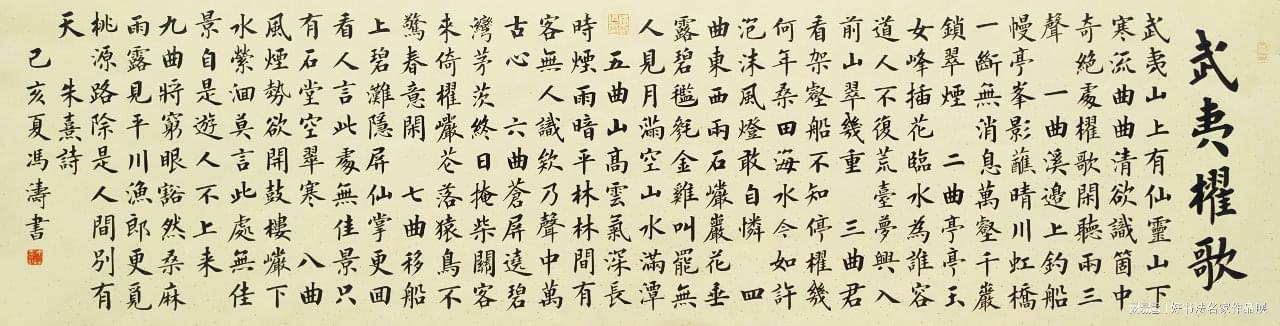 武夷櫂歌
武夷山上有仙靈山下
寒流曲曲清欲識箇中
奇絕處櫂歌閑聽兩三
聲　一曲溪邊上釣船
幔亭峯影蘸晴川虹橋
一斷無消息萬壑千巖
鎖翠煙　二曲亭亭玉
女峰插花臨水為誰容
道人不復荒臺夢興入
前山翠幾重　三曲君
看架壑船不知停櫂幾
何年桑田海水今如許
泡沫風燈敢自憐　四
曲東西兩石巖巖花垂
露碧毿金雞叫罷無
人見月滿空山水滿潭
五曲山高雲氣深長
時煙雨暗平林林間有
客無人識欸乃聲中萬
古心　六曲蒼屏遶碧
灣茅茨終日掩柴關客
來倚櫂巖花落猿鳥不
驚春意閑　七曲移船
上碧灘隱屏仙掌更回
看人言此處無佳景只
有石堂空翠寒　八曲
風煙勢欲開鼓樓巖下
水縈洄莫言此處無佳
景自是遊人不上来
九曲將窮眼豁然桑麻
雨露見平川漁郎更覓
桃源路除是人間別有
天　朱熹詩
己亥夏馮濤書
网易号 | 好书法名家作品撰